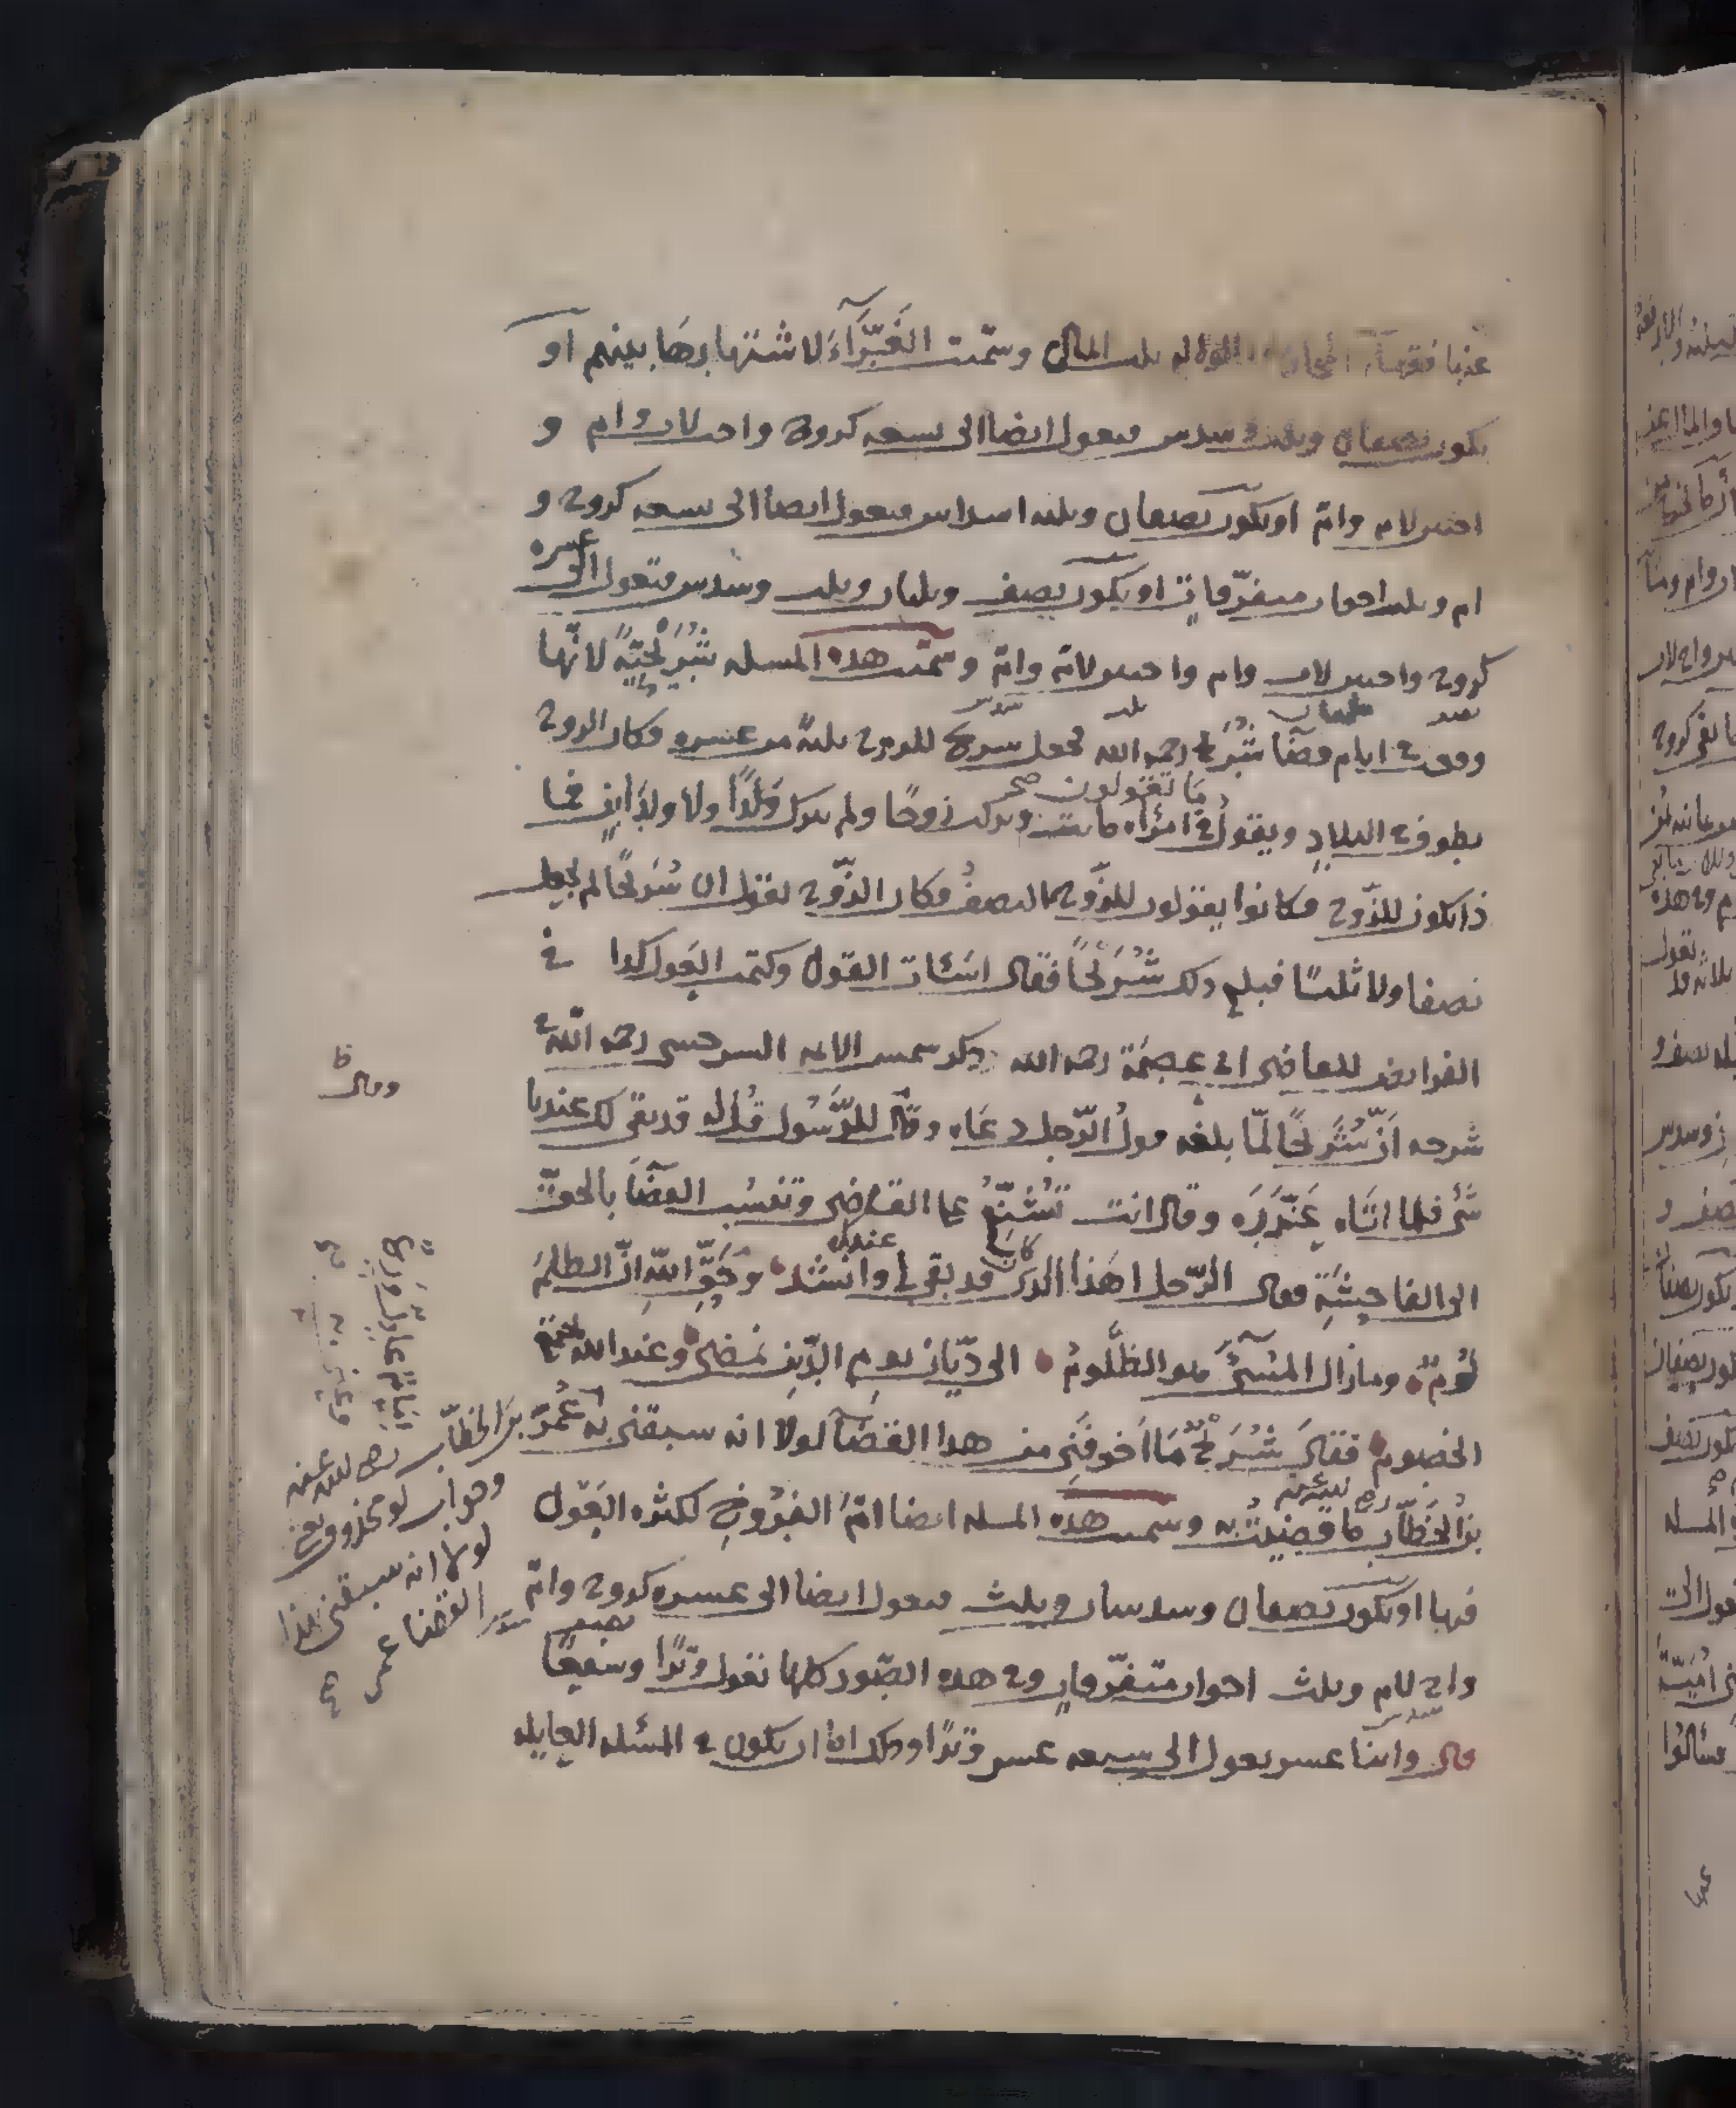 عنها فقهاء الحجاز فقالوا له ثلث المال وسمّيت الغَرَّآءَ لاشتهارها بينهم او
يكون نصفان وثلث وسدس فتعول ايضا الى تسعه كزوج واخت لاب وام و
اختين لام وام او يكون نصفان وثلثه اسداس فتعول ايضا الى تسعه كزوج و
ام وثلث اخوات متفرّقاتٍ او يكون نصف وثلثان وثلث وسدس فتعول الى عشره
كزوج واختين لاب وام واختين لام وام وسمّيت هذه المسله شُرَيْحِيَّةً لانّها
نصف ثلثان ثلث سدس
وقعت في ايام قضآ شُرَيح رحمه الله فجعل شريح للزوج ثلثةً من عشره فكان الزوج
ما تقولون صح
يطوف في البلادِ ويقولُ في امرأه ماتت وتركت زوجًا ولم تترك وَلَدًا ولا ولدَ ابنٍ فما
ذا يكون للزّوج فكانوا يقولون للزّوج النصفُ فكان الزّوج يقول ان شُرَيحًا لم يجعل لي
نصفا ولا ثلثًا فبلغ ذلك شُرَيْحًا فقال اسَأت القول وكتمت العَول كذا في
الفرايض للقاضى ابي عِصمَة رحمه الله وذكر شمس الايمه السرخسى رحمه الله في
شرحه اَنّ شُرَيحًا لمّا بلغه قولُ الرّجل دعَاه وقال للرَّسُول قُل له قد بقى لك عندنا
شئ فلما اتَاه عَزَّرَه وقال انت تُشَنِّعُ على القاضى وتنسُب القضَآ بالحقّ
الى الفاحِشَةِ فقال الرّجل اهَذا الذى كان قد بقى لى عندك وانشد وَحَقِّ اللهِ انّ الظلمَ
لُومٌ وما زال المُسئ هو الظَّلُومُ الى ديّان يومِ الدّينِ نمضى وعند الله تجتمع
الخصوم فقال شُرَيْحٌ مَا اَخوفَنِى من هذا القضَآ لولا انه سبقنى به عُمَرُ
بنُ الخَطّاب رضى الله عنه ما قضيتُ به وسميت هذه المسله ايضا امّ الفُرُوخِ لكثره العَوْل
فيها او يكون نصفان وسدسان وثلث فتعول ايضا الى عشره كزوج وامّ
واخ لام وثلث اخوات متفرّقاتٍ وفي هذه الصّور كلها تعول وَترًا وشفعًا
قال واثنا عشر يعول الى سبعه عشر وَترًا وذلك اذا ان يكون في المسئله العايله
وقال ظ
بن الخطّاب رضى الله عنه
وجواب لو محذوف
لولا انه سبقنى بهذا
القضا عمر